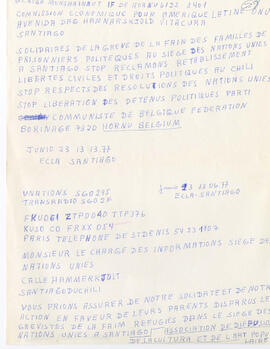 HORNU 6122 2401
COMMISSION ECONOMIQUE POUR AMERIQUE LATINE ONU
AVENIDA DAG HAMMARSKJOLD VITACURA
SANTIAGO
SOLIDAIRES DE LA GREVE DE LA FAIM DES FAMILLES DE
PRISONNIERS POLITIQUES AU SIEGE DES NATIONS UNIES
A SANTIAGO STOP RECLAMONS RETABLISSEMENT
LIBERTES CIVILES ET DROITS POLITIQUES AU CHILI
STOP RESPECTS DES RESOLUTIONS DES NATIONS UNIES
STOP LIBERATION DES DETENUS POLITIQUES PARTI
COMMUNISTE DE BELGIQUE FEDERATION
BORINAGE 7320 HORNU BELGIUM
JUNIO 23 13.13.77
ECLA SANTIAGO
VNATIONS SGO295
TRANSRADIO SGO2
PARIS TELEPHONE DE ST DENIS
MONSIEUR LE CHARGE DES INFORMATIONS SIEGE DES
NATIONS UNIES
CALLE HAMMERJOLT
SANTIAGODUCHILI
VOUS PRIONS ASSURER DE NOTRE SOLIDATE ET DE NOTRE
ACTION EN FAVEUR DE LEURS PARENTS DISPARUS LES
GREVISTES DE LA FAIM REFUGIES DANS LE SIEGE DES
NATIONS UNIES A SANTIAGO ASSOCIATION DE
DE LA CULTURE ET DE L'ART POPU
LAIRE